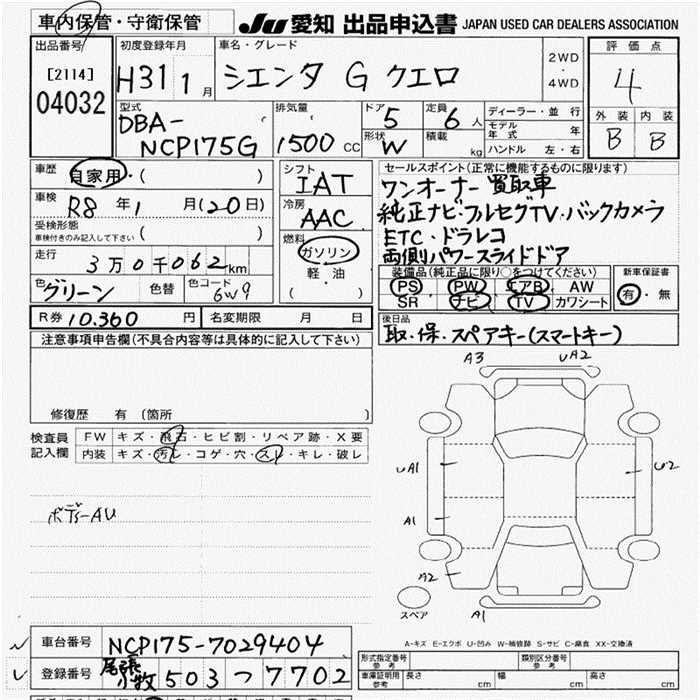 車内保管・守衛保管 JU 愛知 出品申込書 JAPAN USED CAR DEALERS ASSOCIATION
出品番号 [2114] 04032
初度登録年月 H31 1月
車名・グレード シエンタ G クエロ
2WD・4WD
評価点 4
外装 B 内装 B
型式 DBA-NCP175G
排気量 1500 CC
ドア 5 定員 6人
形状 W 積載 kg
ディーラー・並行
モデル年式 年
ハンドル 左・右
車歴 自家用・( )
車検 R8年1月(20日)
受検形態 車検付きのみ記入して下さい ( )
走行 3万0千062km
色 グリーン 色替 色コード 6W9
シフト IAT
冷房 AAC
燃料 ガソリン 軽・油 ( )
セールスポイント(正常に機能するものに限ります)
ワンオーナー 買取車
純正ナビ・フルセグTV・バックカメラ
ETC・ドラレコ
両側パワースライドドア
装備品(純正品に限り○をつけてください)
PS PW エアB AW
SR ナビ TV カワシート
新車保証書 有・無
R券 10.360円 名変期限 月 日
後日品
取・保・スペアキー(スマートキー)
注意事項申告欄(不具合内容等は具体的に記入して下さい)
修復歴 有 (箇所 )
検査員記入欄
FW キズ・飛石・ヒビ割・リペア跡・X要
内装 キズ・汚レ・コゲ・穴・スレ・キレ・破レ
ボディ-AU
A3 UA2
UA1 U2
A1
A2
スペア A1
A-キズ E-エクボ U-凹み W-補修跡 S-サビ C-腐食 XX-交換済
車台番号 NCP175-7029404
登録番号 尾張小牧 503 - 7702
形式指定番号 参考 類別区分番号 参考
車庫証明用 参考 長さ cm 幅 cm 高さ cm